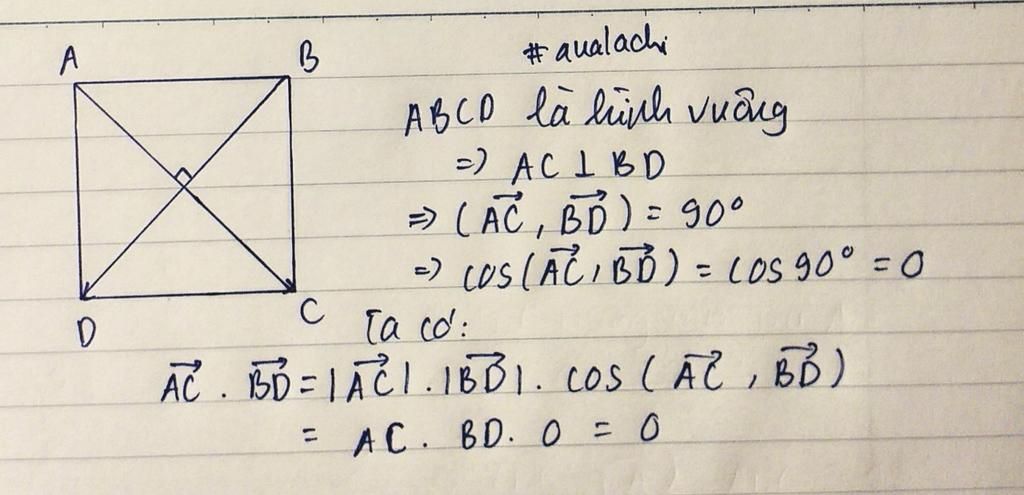 #aualachi
A B
ABCD là hình vuông
=> AC ⊥ BD
=> (\overrightarrow{AC}, \overrightarrow{BD}) = 90°
=> cos(\overrightarrow{AC}, \overrightarrow{BD}) = cos 90° = 0
D C
Ta có:
\overrightarrow{AC} . \overrightarrow{BD} = |\overrightarrow{AC}| . |\overrightarrow{BD}| . cos (\overrightarrow{AC}, \overrightarrow{BD})
= AC . BD . 0 = 0